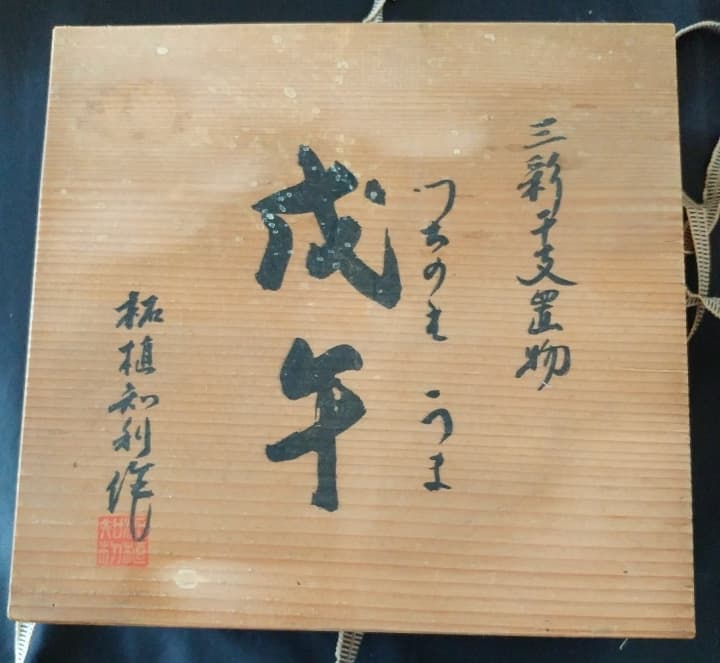 三彩干支置物
つちのえ うま
戊午
柘植知利作